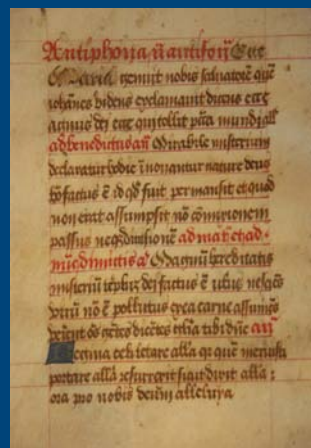 Antiphona añ antifoñ Ecce
Maria genuit nobis salvatorē quē
iohānes videns exclamavit dicens ecce
agnus dei ecce qui tollit pccā mundi allā
ad benedictus añ Mirabile misterium
declaratur hodie īnovantur nature deus
hō factus ē id qd fuit permansit et quod
non erat assumpsit nō comixtionem
passus neqz divisionē ad
dimittis a Magnū hereditatis
misteriū tēplūz dei factus ē uterus nesciēs
virū nō ē pollutus ex ea carnē assumēs
veniēt ōs gētes dicētes glia tibi dñe añ
Regina celi letare allā qr quē meruisti
portare allā resurrexit sicut dixit allā :
ora pro nobis deum alleluya